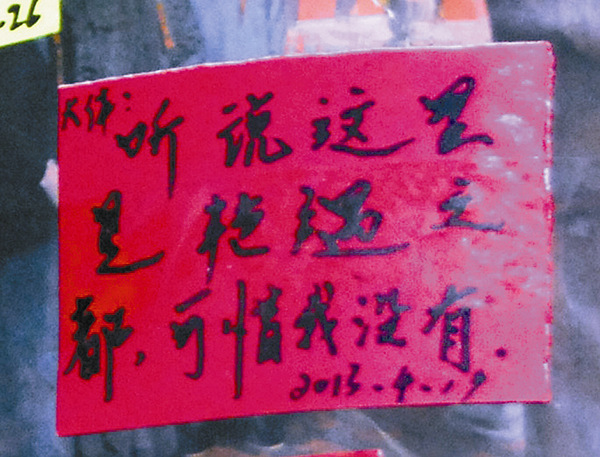 26
听说这里
是艳遇之
都,可惜我没有.
2013.4.